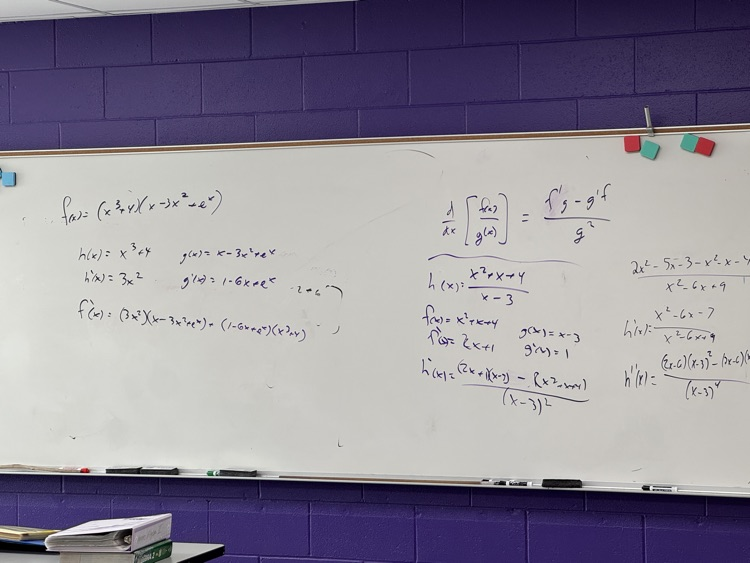 f(x) = (x³+4)(x-3x²+eˣ)
h(x) = x³+4 g(x) = x-3x²+eˣ
h'(x) = 3x² g'(x) = 1-6x+eˣ
f'(x) = (3x²)(x-3x²+eˣ) + (1-6x+eˣ)(x³+4)
d/dx [f(x)/g(x)] = (f'g - g'f)/g²
h(x) = (x²+x+4)/(x-3)
f(x) = x²+x+4 g(x) = x-3
f'(x) = 2x+1 g'(x) = 1
h'(x) = ((2x+1)(x-3) - (x²+x+4))/(x-3)²
(2x²-5x-3-x²-x-4)/(x²-6x+9)
h'(x) = (x²-6x-7)/(x²-6x+9)
h''(x) = ((2x-6)(x-3)²-(2x-6)(x/(x-3)⁴